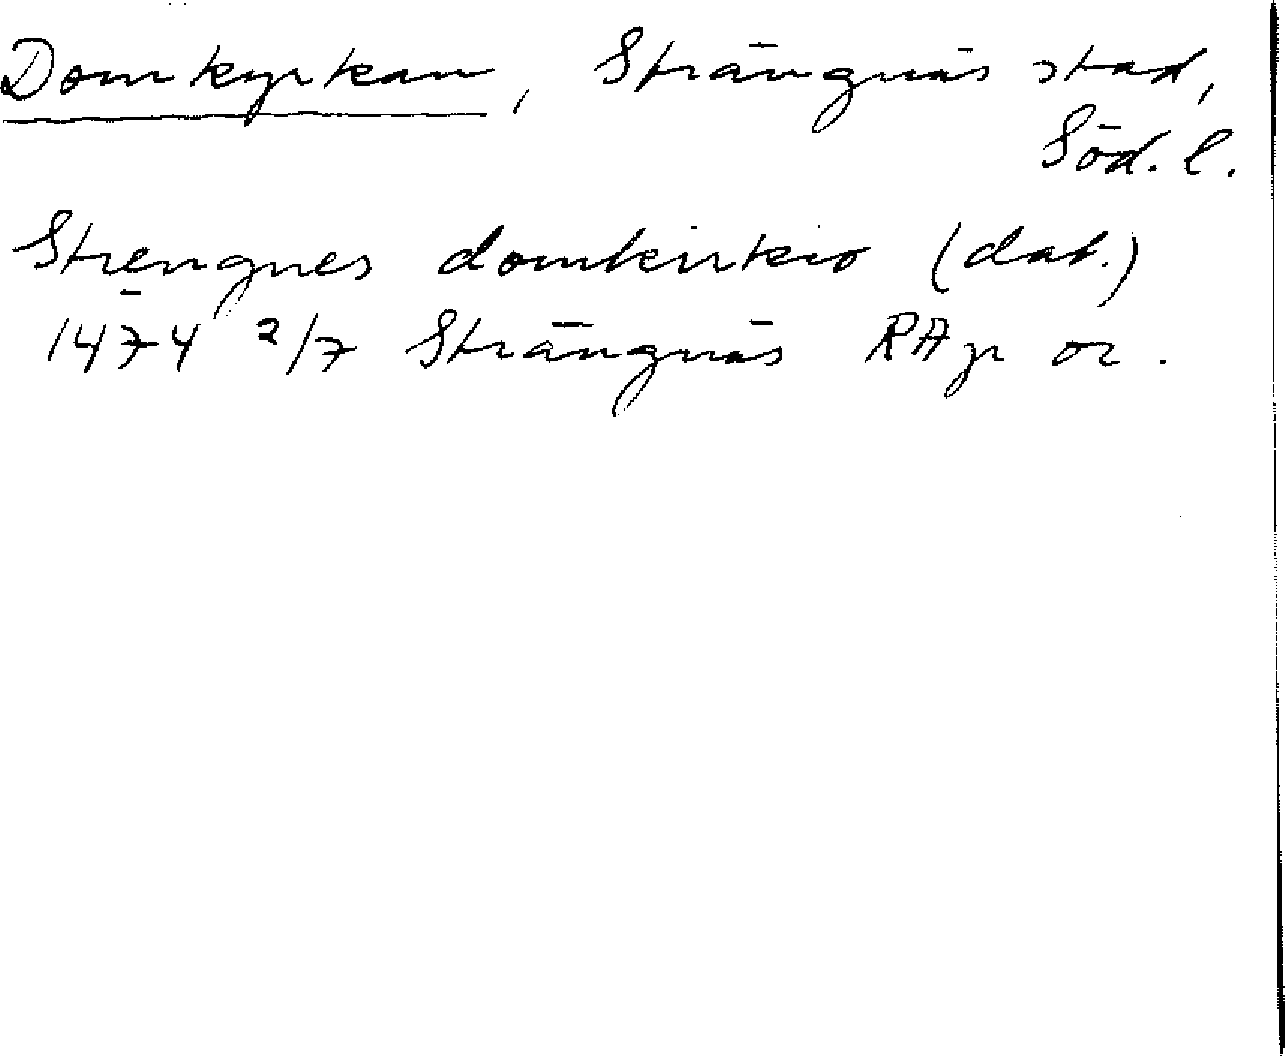 Domkyrkan, Strängnäs stad,
Söd. l.
Strengnes domkirkio (dat.)
1474 2/7 Strängnäs RAp or.